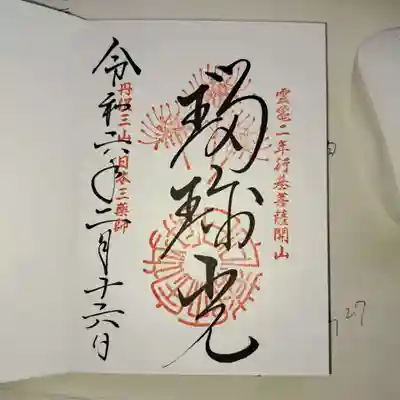 靈龜二年行基菩薩開山
瑠璃光
令和六年二月十六日
三山 日本三薬師
27